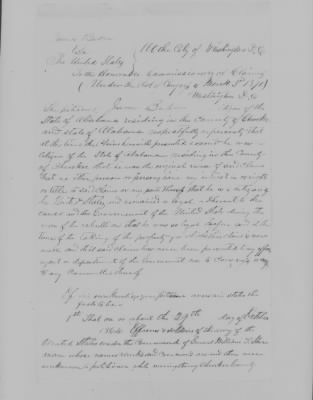 James
vs
The United States
At the City of Washington D.C.
To the Honorable Commissioners of Claims
(Under the Act of Congress of March 3rd 1871)
Washington D.C.
The petition of James
State of Alabama residing in the County of Cherokee
and State of Alabama respectfully represents that
at the time this claim herein presented accrued he was a
citizen of the State of Alabama residing in the County
of Cherokee that he was the original owner of said claim
that no other person or persons have any interest in or right
or title to said claim or any part thereof that he is a citizen of
the United States and remained a loyal adherent to the
cause and the Government of the United States during the
war of the rebellion that he was so loyal before and at the
time of the taking of the property for which this claim is
made and that said claim has never been presented to any officer
agent or department of the Government nor to Congress or
to any Committee thereof
your petitioner avers and states the
facts to be
1st That on or about the 29th day of October
1864 Officers & soldiers of the army of the
United States under the Command of General William T. Sher
man whose names ranks and Commands are and then were
unknown to petitioner while